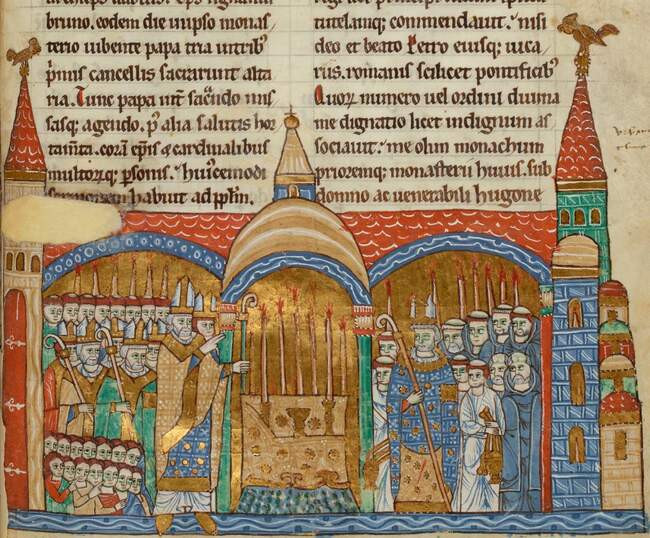 bruno. eodem die in ipso monas
terio iubente papa tria in tribꝰ
pͥmis cancellis sacrarunt alta
ria. Tunc papa int̄ sac̄ndū mis
sasq; agendo. p̄ alia salutis hor
tam̄ta. corā ep̄is & cardinalibus
multorꝗ; p̱sonis. huꝰcemodi
sermonem habuit ad pp̄lm.
tutelamq; commendauit. nisi
deo et beato Petro eiusq; uica
riis. romanis scilicet pontificibꝰ
Quorꝝ numero uel ordini diuina
me dignatio licet indignum as
sociauit. me olim monachum
prioremq; monasterii huius. sub
domno ac uenerabili hugone